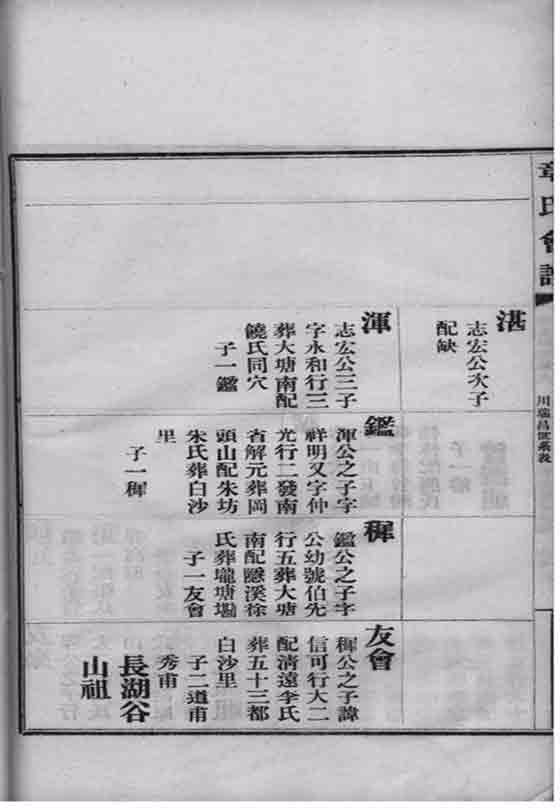 章氏會譜
川瑞昌世系表
湛
志宏公次子
配缺
渾
志宏公三子
字永和行三
葬大塘南配
饒氏同穴
子一鑑
鑑
渾公之子字
祥明又字仲
光行二發南
省解元葬岡
頭山配朱坊
朱氏葬白沙
里
子一穉
穉
鑑公之子字
公幼號伯先
行五葬大塘
南配隱溪徐
氏葬壠塘塴
子一友會
友會
穉公之子諱
信可行大二
配清遠李氏
葬五十三都
白沙里
子二道甫
秀甫
長湖谷
山祖